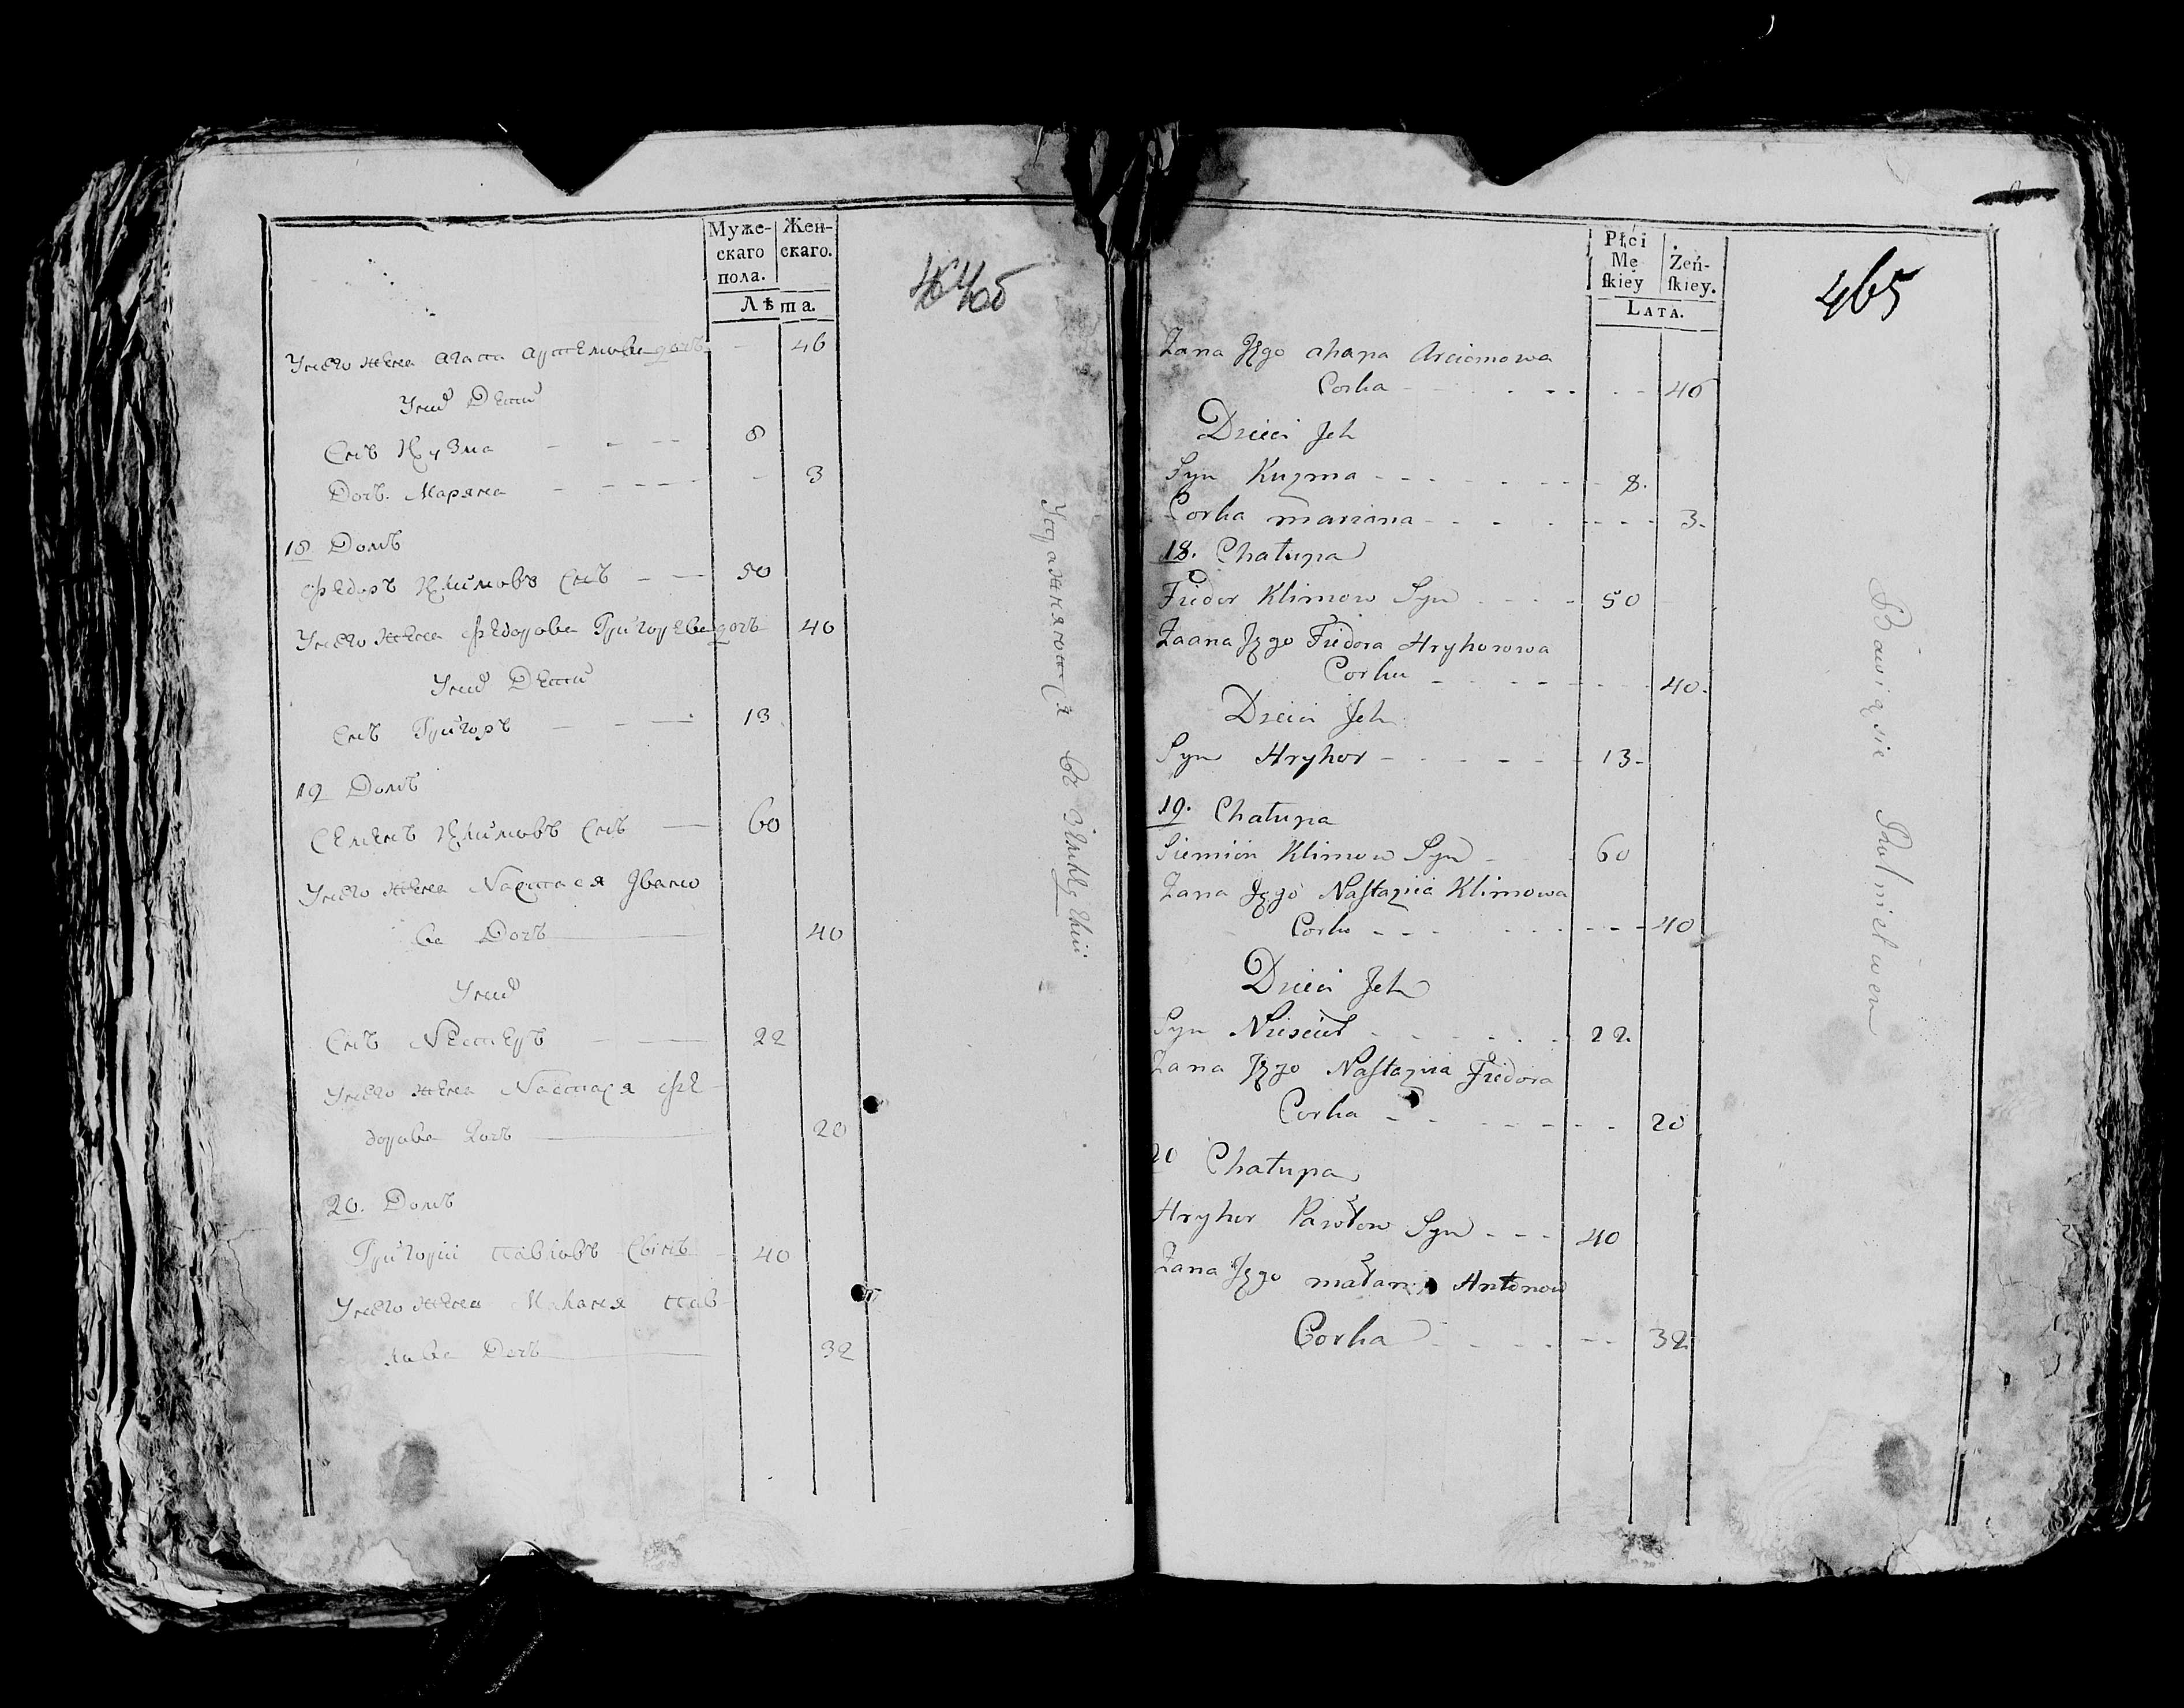 Муже-
скаго
пола.
Жен-
скаго.
Лѣта.
464об
Унего жена Агата Артемова дочь - 46
Уних Дети
Снъ Кузма - - - - 8
Дочь. Маряна - - - - - - 3
18 Домъ
Федоръ Климовъ Снъ - - 50
Унего жена Федорова Григорева дочь 40
Уних Дети
Снъ Григоръ - - - 13
19 Домъ
Семенъ Климовъ Снъ - 60
Унего жена Настася Ивано
ва Дочь 40
Уних
Снъ Нестеръ - - 22
Унего жена Настася Фе
дорова дочь 20
20. Домъ
Григории Павловъ Сынъ - 40
Унего жена Маланя Пав
лова Дочь 32
Упражняются в
Płci
Mę
ſkiey
Żeń-
ſkiey.
LATA.
465
Zana Jego ahapa Arciomowa
Corka - - - - - - - - 46
Dzieci Jch
Syn Kuzma - - - - - - - - 8.
Corka mariana - - - - - - - - 3.
18. Chałupa
Fiedor Klimow Syn - - - - 50
Zaana Jego Fiedora Hryhorowa
Corka - - - - - - - 40.
Dzieci Jch
Syn Hryhor - - - - - - 13-
19. Chałupa
Siemion Klimow Syn - - 60
Zana Jego Naſtazia Klimowa
Corka - - - - - - - 40
Dzieci Jch
Syn - - - - - 22.
Zana Jego Naſtazia Fiedora
Corka - - - - - - - 20
20 Chałupa
Hryhor Pawłow Syn - - - 40
Zana Jego małania Antonow
Corka - - - - - - 32
Bawią się Rolnictwem